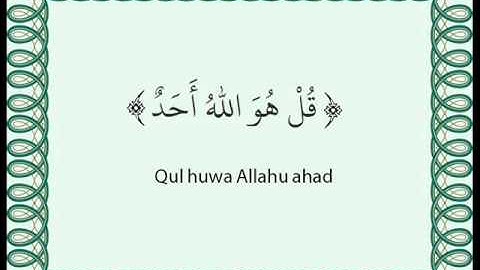 ﴿ قُلْ هُوَ اللَّهُ أَحَدٌ ﴾
Qul huwa Allahu ahad